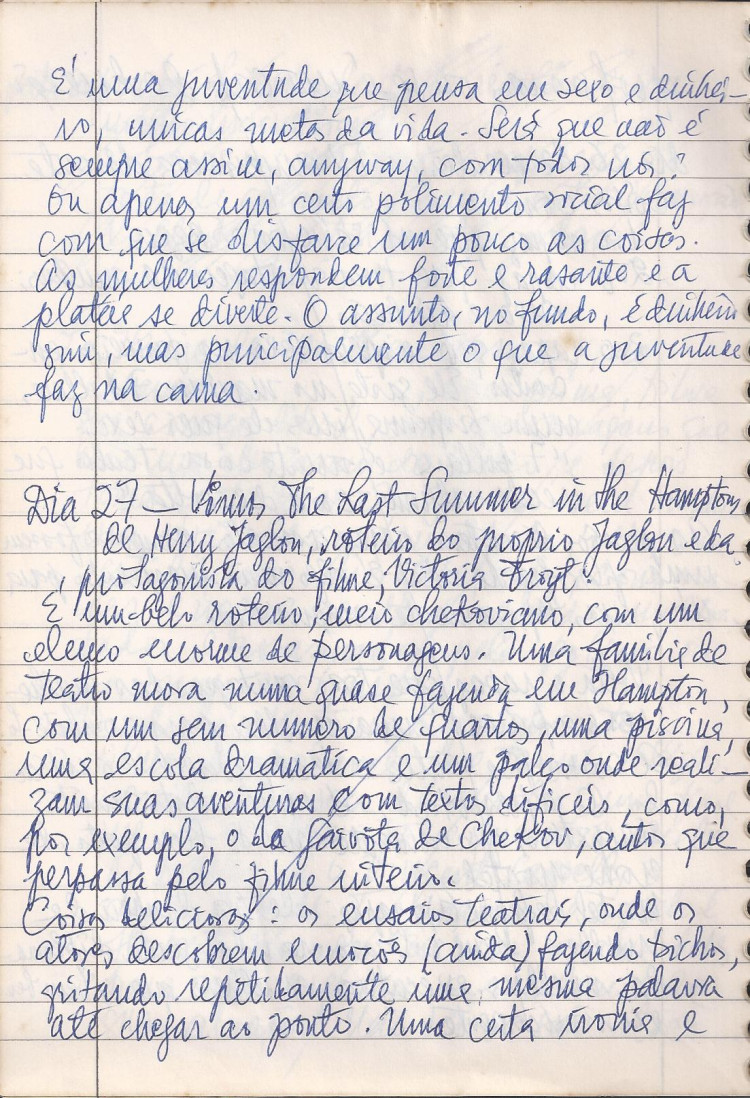 É uma juventude que pensa em sexo e dinhei-
ro, unicas metas da vida. Será que não é
sempre assim, anyway, com todos nós?
Ou apenas um certo polimento social faz
com que se disfarce um pouco as coisas.
As mulheres respondem forte e rasante e a
platéia se diverte. O assunto, no fundo, é dinheiro
sim, mas principalmente o que a juventude
faz na cama.
Dia 27 — Vimos The Last Summer in the Hamptons
de Henry Jaglon, roteiro do proprio Jaglon e da
protagonista do filme, Victoria Froyt.
É um belo roteiro, meio chekoviano, com um
elenco enorme de personagens. Uma familia de
teatro mora numa quase fazenda em Hampton,
com um sem numero de quartos, uma piscina,
uma escola dramática e um palco onde reali-
zam suas aventuras com textos dificeis, como,
por exemplo, o da Gaivota de Chekov, autor que
perpassa pelo filme inteiro.
Coisas deliciosas: os ensaios teatrais, onde os
atores descobrem emoções (ainda) fazendo bichos,
gritando repetidamente uma mesma palavra
até chegar ao ponto. Uma certa ironia e